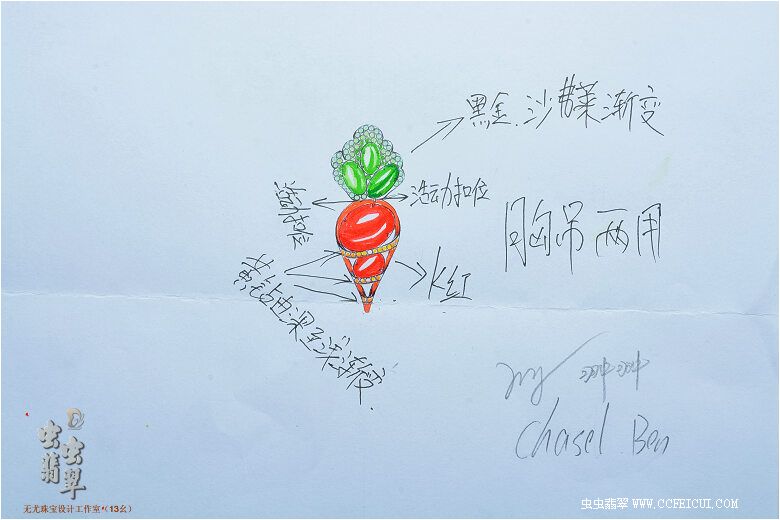 黑金.沙弗莱渐变
活动扣位
胸吊两用
K红
黄钻由深至浅渐变.
Chasel.Ben
虫虫翡翠
无尤珠宝设计工作室*(13幺)
虫虫翡翠 WWW.CCFEICUI.COM